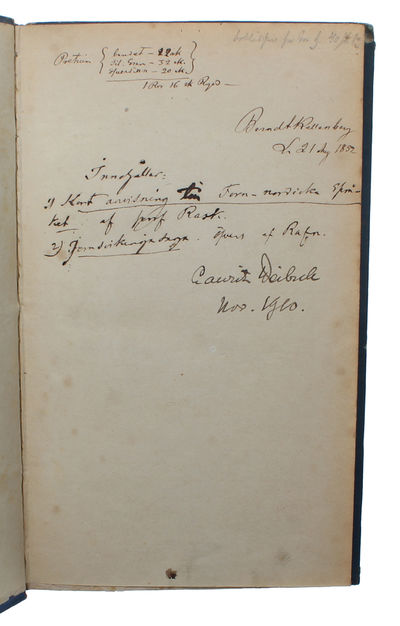 Pretium
bandet – 22 sk
– 32 sk.
– 20 sk.
1 Rdr 16 sk Rgd –
Berndt Kallenberg
21 Aug 1852
Innehåller:
1) Kort anvisning till Forn-nordiska Språ-
ket af prof Rask.
2) Jomsvikingasaga. öfvers af Rafn.
Lauritz Weibull
Nov. 1910.